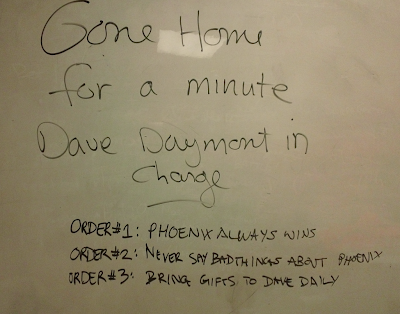 Gone Home
for a minute
Dave Daymont in
charge
ORDER#1: PHOENIX ALWAYS WINS
ORDER#2: NEVER SAY BAD THINGS ABOUT PHOENIX
ORDER#3: BRING GIFTS TO DAVE DAILY